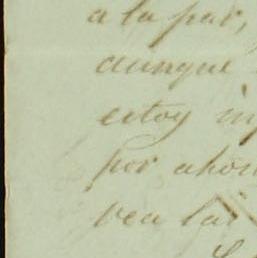 a la par,
aunque
estoy in
por ahor
vea las